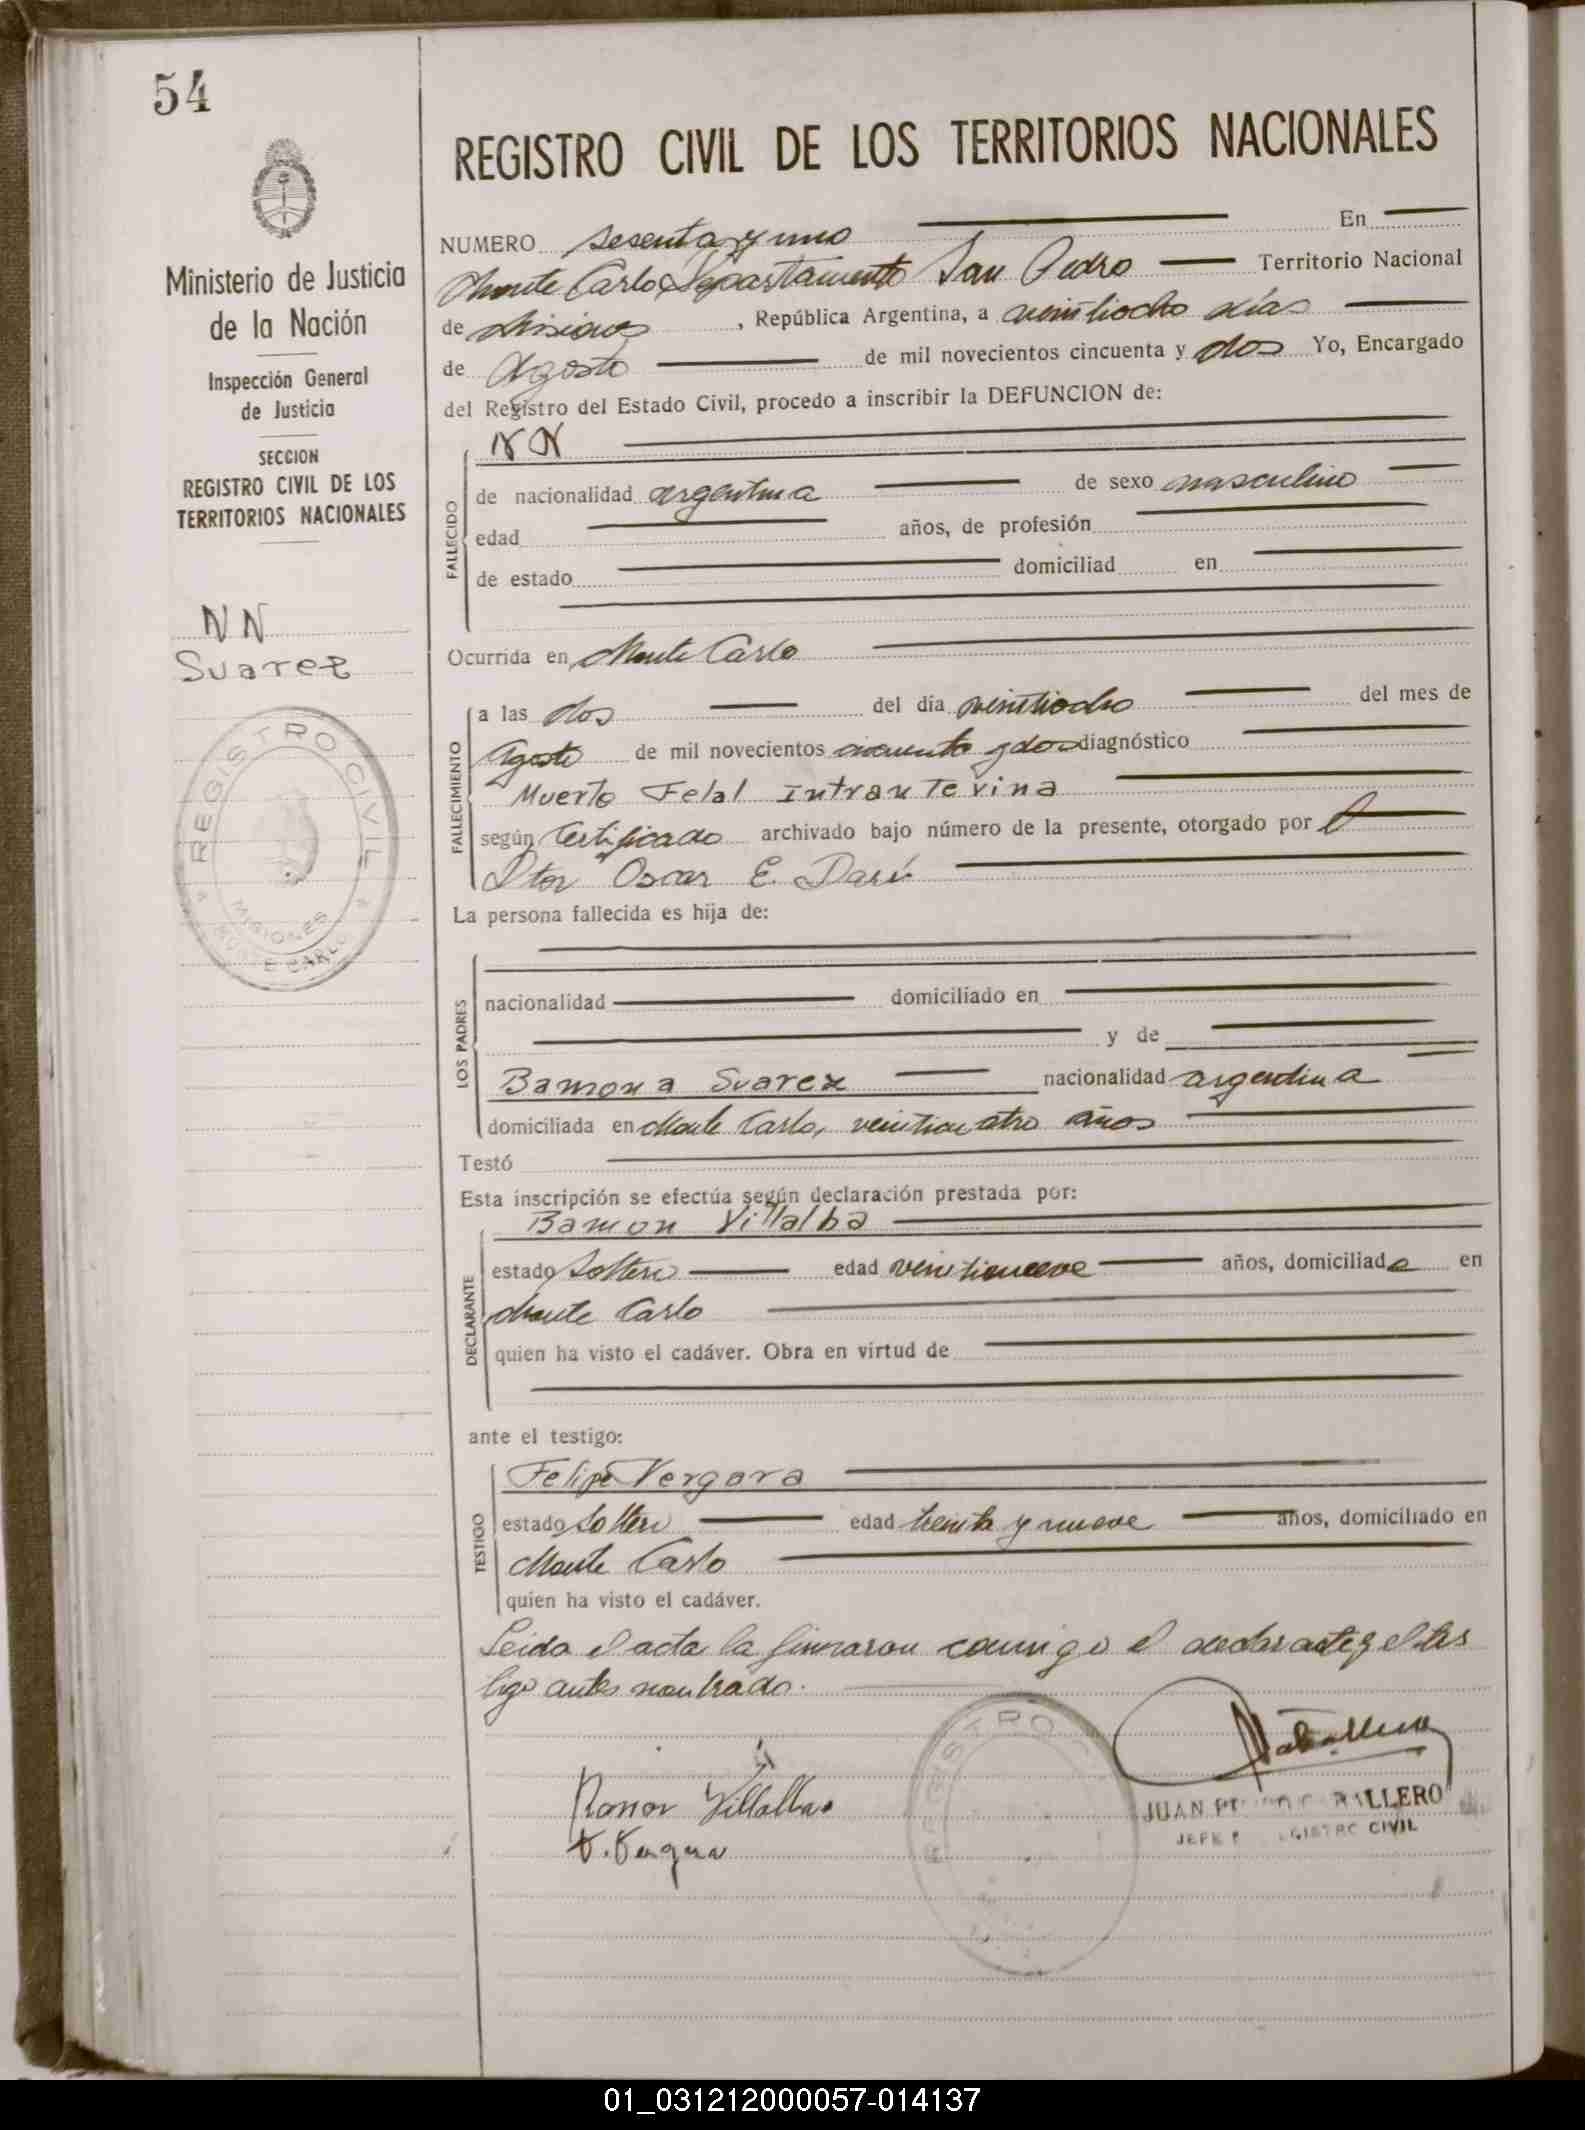 54
REGISTRO CIVIL DE LOS TERRITORIOS NACIONALES
Ministerio de Justicia
de la Nación
Inspección General
de Justicia
SECCION
REGISTRO CIVIL DE LOS
TERRITORIOS NACIONALES
NN
Suarez
REGISTRO CIVIL
MISIONES
MONTE CARLO
NUMERO sesenta y uno En
Monte Carlo Departamento San Pedro Territorio Nacional
de Misiones, República Argentina, a veintiocho días
de Agosto de mil novecientos cincuenta y dos Yo, Encargado
del Registro del Estado Civil, procedo a inscribir la DEFUNCION de:
FALLECIDO
NN
de nacionalidad argentina de sexo masculino
edad años, de profesión
de estado domiciliad en
Ocurrida en Monte Carlo
FALLECIMIENTO
a las dos del día veintiocho del mes de
Agosto de mil novecientos cincuenta y dos diagnóstico
Muerto Fetal Intrauterina
según Certificado archivado bajo número de la presente, otorgado por el
Dtor Oscar E. Darú
La persona fallecida es hija de:
LOS PADRES
nacionalidad domiciliado en
y de
Ramona Suarez nacionalidad argentina
domiciliada en Monte Carlo, veinticuatro años
Testó
Esta inscripción se efectúa según declaración prestada por:
DECLARANTE
Ramon Villalba
estado soltero edad veintinueve años, domiciliado en
Monte Carlo
quien ha visto el cadáver. Obra en virtud de
ante el testigo:
TESTIGO
Felipe Vergara
estado soltero edad treinta y nueve años, domiciliado en
Monte Carlo
quien ha visto el cadáver.
Leida el acta la firmaron conmigo el declarante y el tes
tigo antes nombrado.
Ramon Villalba
F. Vergara
REGISTRO
Caballero
JUAN CABALLERO
JEFE REGISTRO CIVIL
01_031212000057-014137